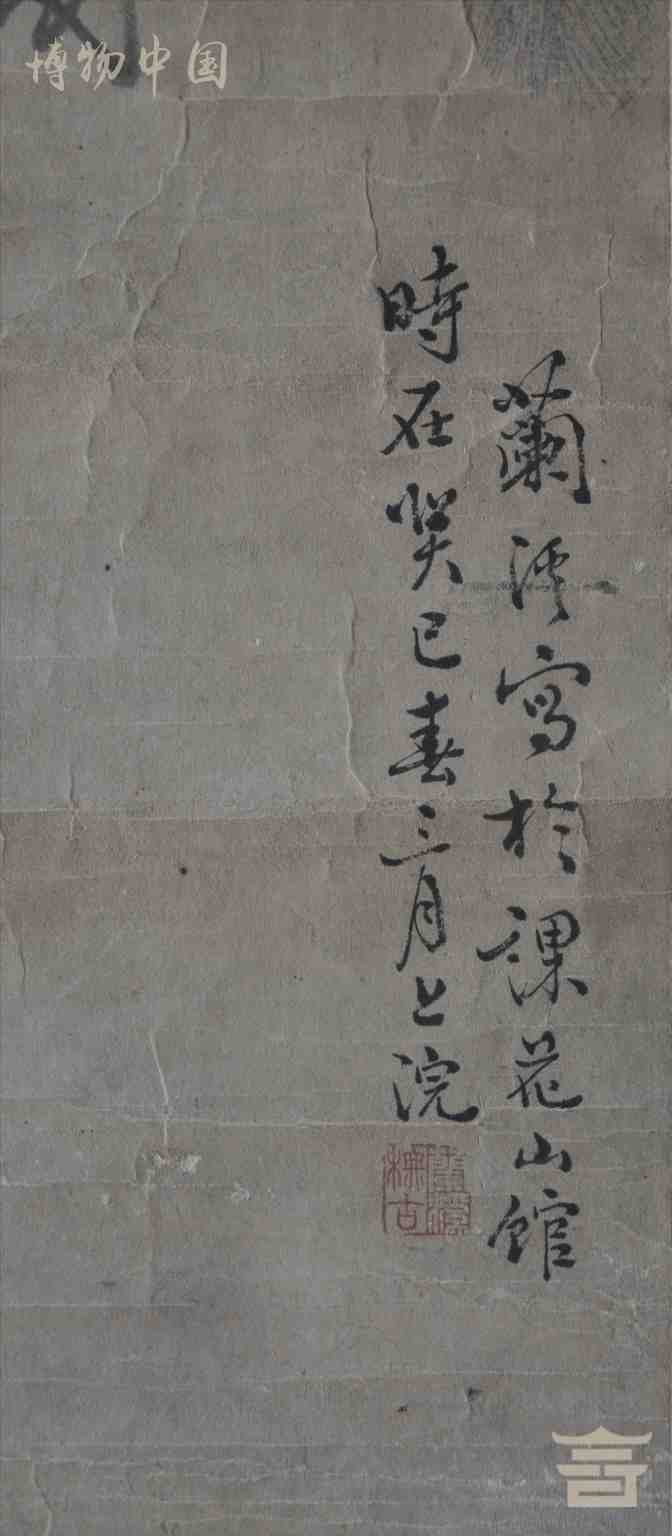 博物中国
時在癸巳春三月上浣
蘭溪寫於課花山館